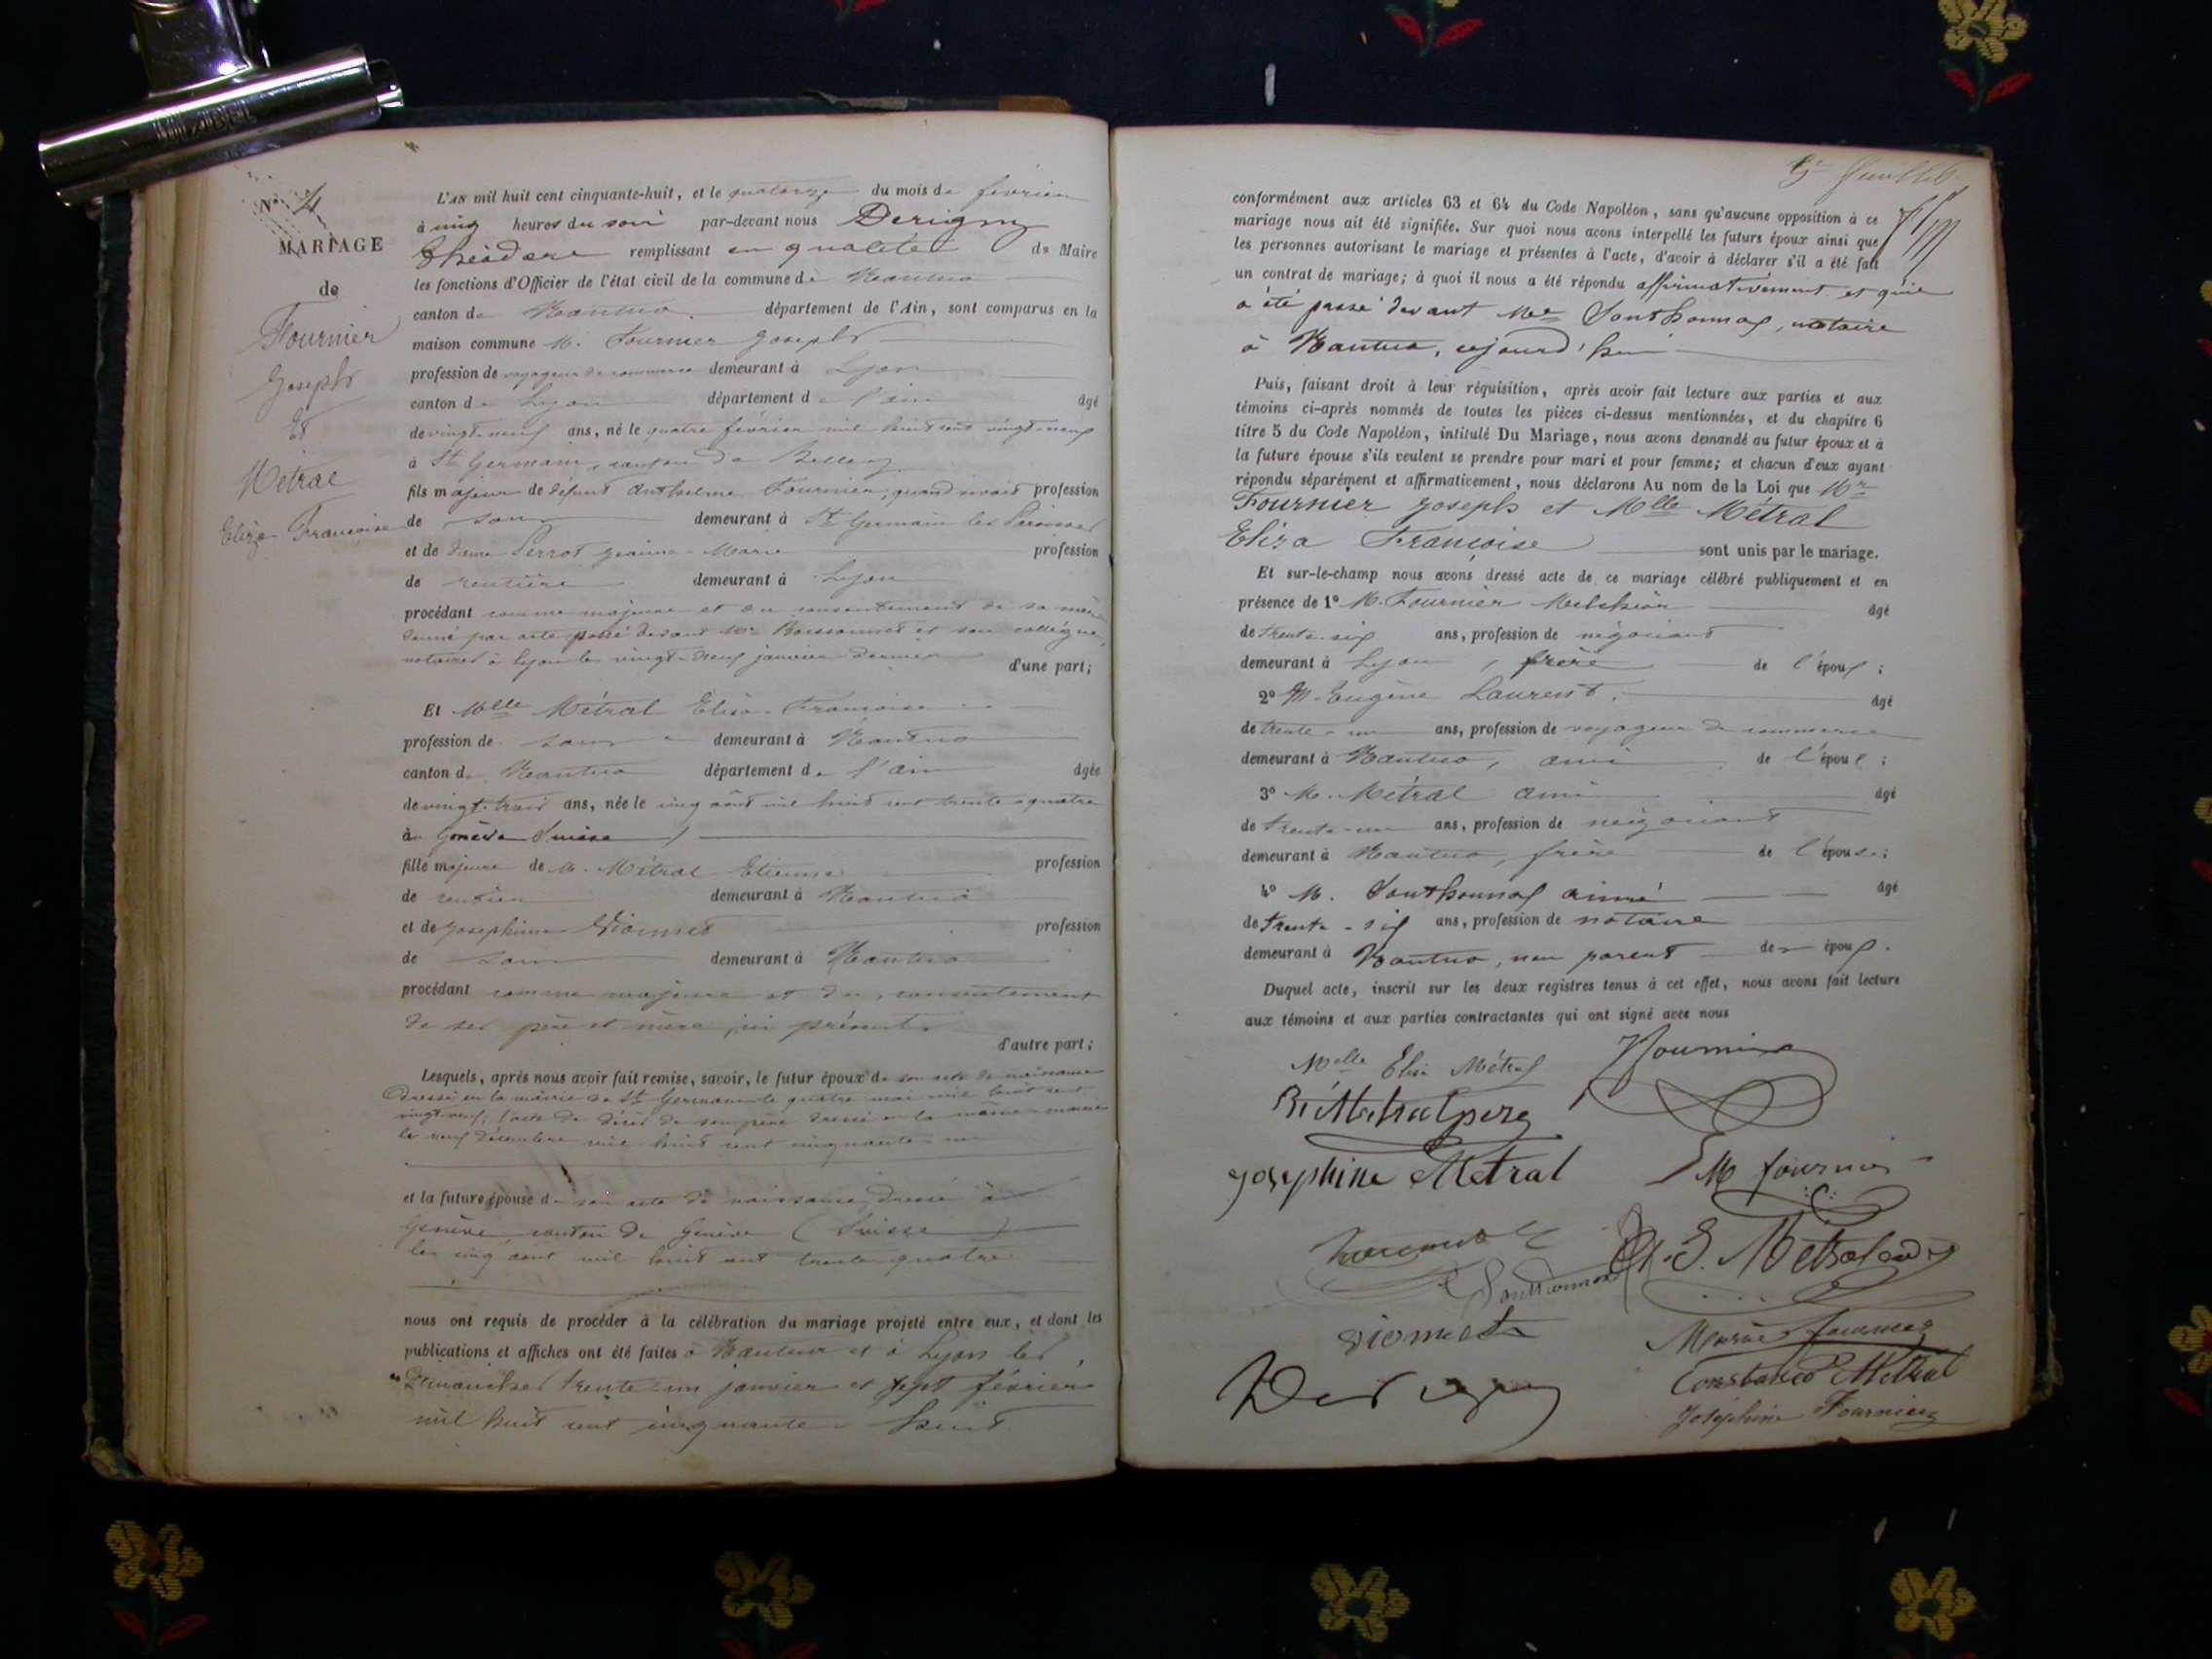 N° 4
MARIAGE
de
Fournier
Joseph
Et
Métral
Eliza-Françoise
L'AN mil huit cent cinquante-huit, et le quatorze du mois de février
à cinq heures du soir par-devant nous Derigny
Théodore remplissant en qualité de Maire
les fonctions d'Officier de l'état civil de la commune de Nantua
canton de Nantua département de l'Ain, sont comparus en la
maison commune M. Fournier Joseph
profession de voyageur de commerce demeurant à Lyon
canton de Lyon département de l'ain âgé
de vingt-neuf ans, né le quatre février mil huit cent vingt-neuf
à St Germain, canton de Belley
fils majeur de défunt Anthelme Fournier, quand vivait profession
de sans demeurant à St Germain les Paroisses
et de dame Perrot Jeanne-Marie profession
de rentière demeurant à Lyon
procédant comme majeur et du consentement de sa mère
donné par acte passé devant Me et son collègue,
notaires à Lyon le vingt-neuf janvier dernier d'une part;
Et Mlle Métral Eliza-Françoise
profession de sans demeurant à Nantua
canton de Nantua département de l'ain âgée
de vingt-trois ans, née le cinq août mil huit cent trente-quatre
à Genève Suisse
fille majeure de M. Métral Etienne profession
de rentier demeurant à Nantua
et de Josephine profession
de sans demeurant à Nantua
procédant comme majeure et du consentement
de ses père et mère, ici présents
d'autre part;
Lesquels, après nous avoir fait remise, savoir, le futur époux de son acte de naissance
dressé en la mairie de St Germain le quatre mai mil huit cent
vingt-neuf; l'acte de décès de son père dressé en la même mairie
le neuf décembre mil huit cent cinquante-un
et la future épouse de son acte de naissance, dressé à
Genève, canton de Genève (Suisse)
le cinq août mil huit cent trente-quatre
nous ont requis de procéder à la célébration du mariage projeté entre eux, et dont les
publications et affiches ont été faites à Nantua et à Lyon les
Dimanches trente-un janvier et sept février
mil huit cent cinquante-huit
conformément aux articles 63 et 64 du Code Napoléon, sans qu'aucune opposition à ce
mariage nous ait été signifiée. Sur quoi nous avons interpellé les futurs époux ainsi que
les personnes autorisant le mariage et présentes à l'acte, d'avoir à déclarer s'il a été fait
un contrat de mariage; à quoi il nous a été répondu affirmativement et qu'il
a été passé devant Me Sonthonnax, notaire
à Nantua, cejourd'hui
Puis, faisant droit à leur réquisition, après avoir fait lecture aux parties et aux
témoins ci-après nommés de toutes les pièces ci-dessus mentionnées, et du chapitre 6
titre 5 du Code Napoléon, intitulé Du Mariage, nous avons demandé au futur époux et à
la future épouse s'ils veulent se prendre pour mari et pour femme; et chacun d'eux ayant
répondu séparément et affirmativement, nous déclarons Au nom de la Loi que Mr
Fournier Joseph et Mlle Métral
Eliza Françoise sont unis par le mariage.
Et sur-le-champ nous avons dressé acte de ce mariage célébré publiquement et en
présence de 1° M. Fournier Melchior âgé
de trente-six ans, profession de négociant
demeurant à Lyon, frère de l'époux;
2° M. Eugène Laurent âgé
de trente-un ans, profession de voyageur de commerce
demeurant à Nantua, ami de l'époux;
3° M. Métral âgé
de trente-un ans, profession de négociant
demeurant à Nantua, frère de l'épouse;
4° M. Sonthonnax aimé âgé
de trente-six ans, profession de notaire
demeurant à Nantua, non parent de époux.
Duquel acte, inscrit sur les deux registres tenus à cet effet, nous avons fait lecture
aux témoins et aux parties contractantes qui ont signé avec nous
Melle Elisa Métral
JFournier
Métral père
Josephine Metral
M fournier
Sonthonnax
Métral
Constance Métral
Joséphine Fournier
Derigny